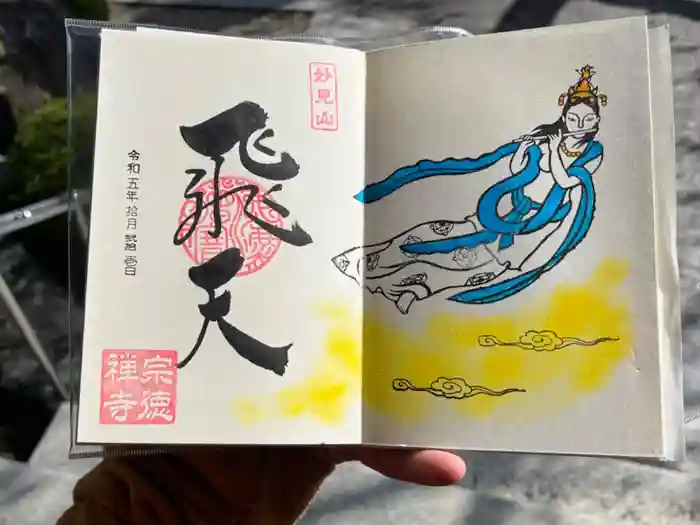 妙見山
飛天
令和五年拾月弐拾壱日
宗徳
禅寺